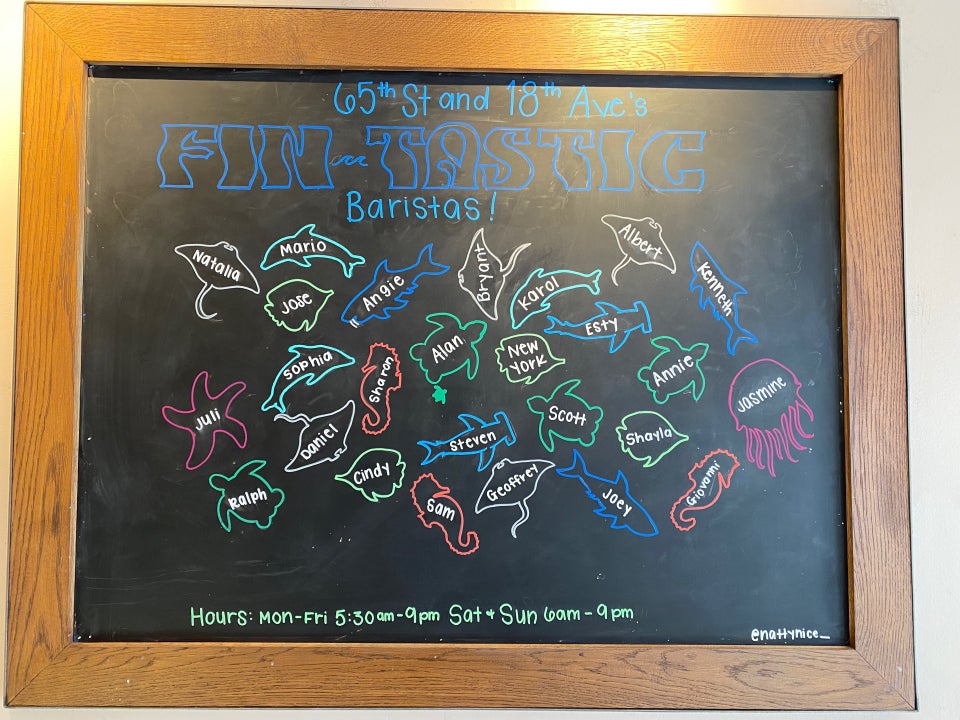 65th St and 18th Ave's
FIN~TASTIC
Baristas!
Natalia
Mario
Jose
Angie
Bryant
Karol
Esty
Albert
Kenneth
Sophia
Sharon
Alan
NEW
YORK
Annie
Jasmine
Juli
Daniel
Steven
Scott
Shayla
Ralph
Cindy
Sam
Geoffrey
Joey
Giovanni
Hours: Mon-Fri 5:30am-9pm Sat + Sun 6am-9pm
@nattynice_